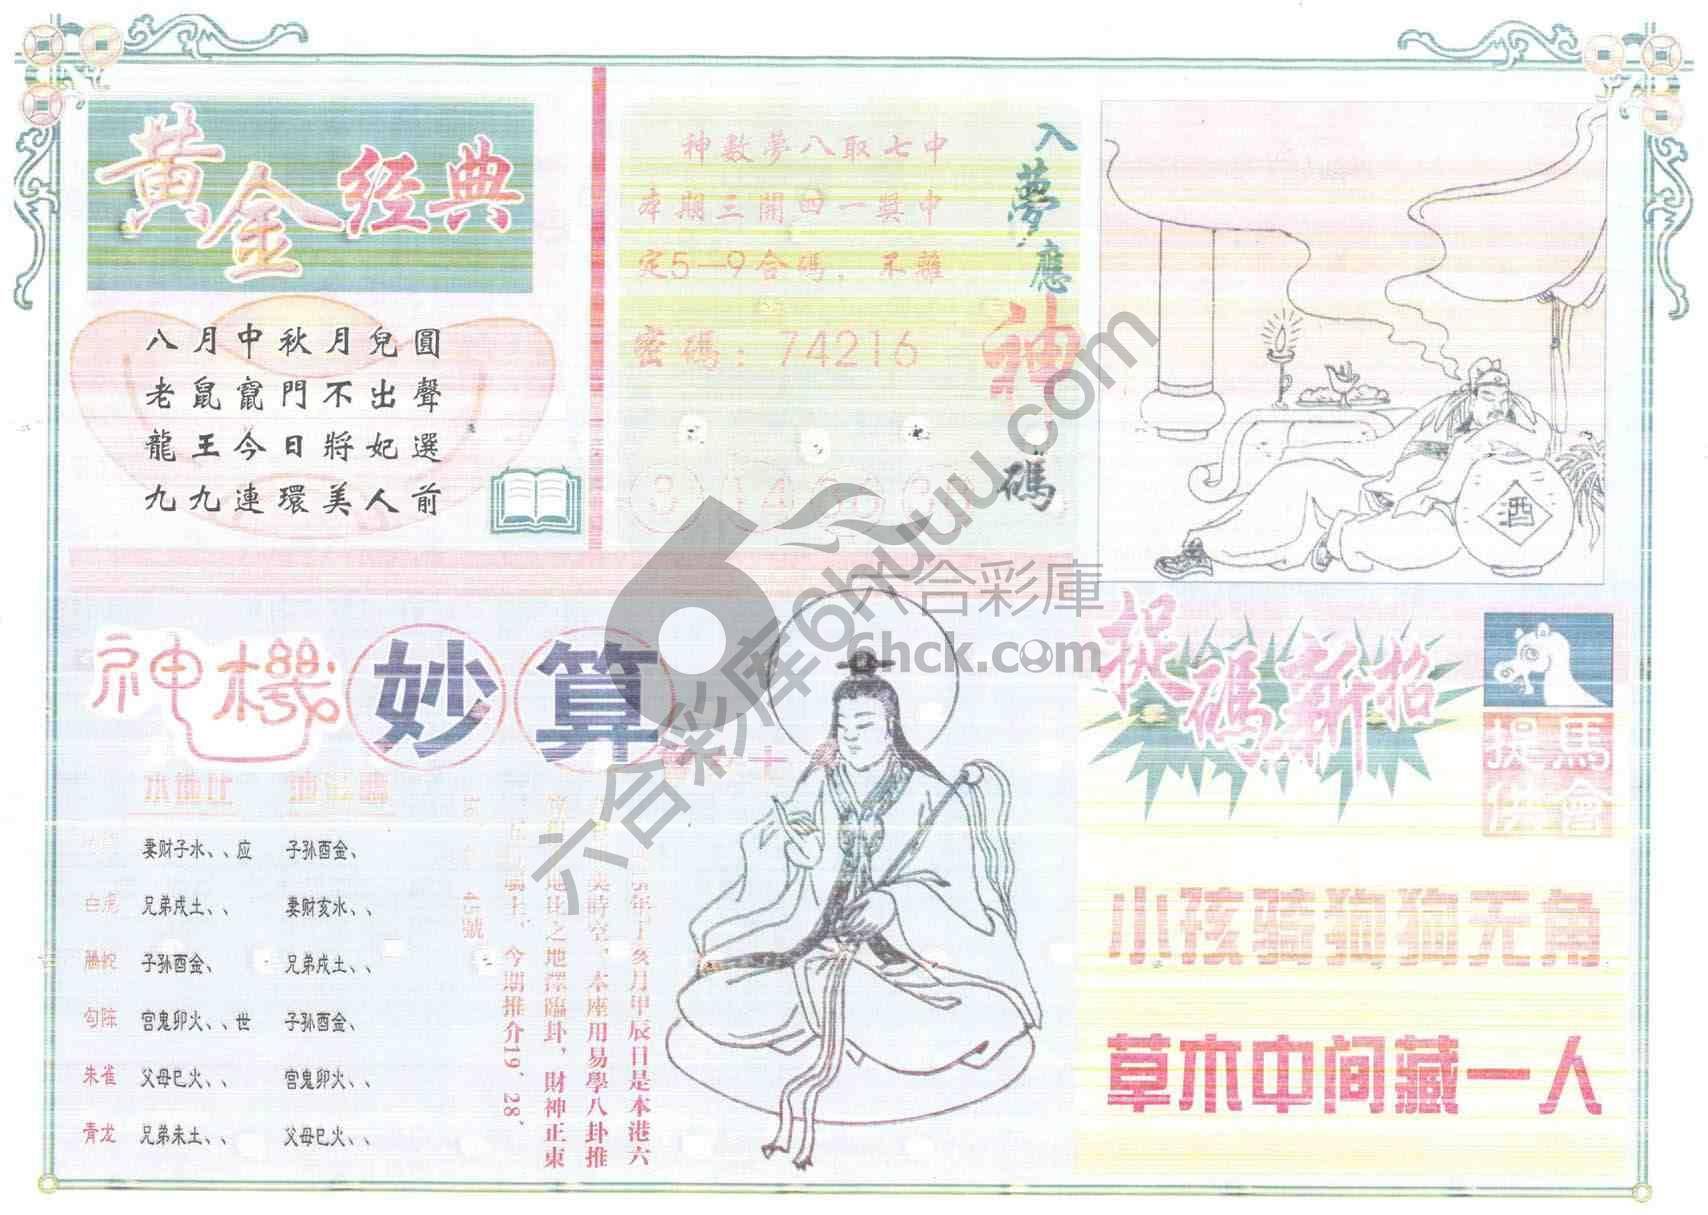 黄金经典
八月中秋月兒圓
老鼠竄門不出聲
龍王今日將妃選
九九連環美人前
神數夢八取七中
本期三開四一與中
定5—9合碼，不離
密碼：74216
入夢應神碼
酒
六合彩庫
6hck.com
六合彩库6huuu.com
神機妙算
妻财子水、、应 子孙酉金、
白虎 兄弟戌土、、 妻财亥水、、
螣蛇 子孙酉金、 兄弟戌土、、
勾陈 官鬼卯火、、世 子孙酉金、
朱雀 父母巳火、、 官鬼卯火、、
青龙 兄弟未土、、 父母巳火、、
亥月甲辰日是本港六
時空，本座用易學八卦推
地比之地澤臨卦，財神正東
今期推介19、28、
45號
捉碼新招
捉馬
俱會
小孩骑狗狗无角
草木中间藏一人